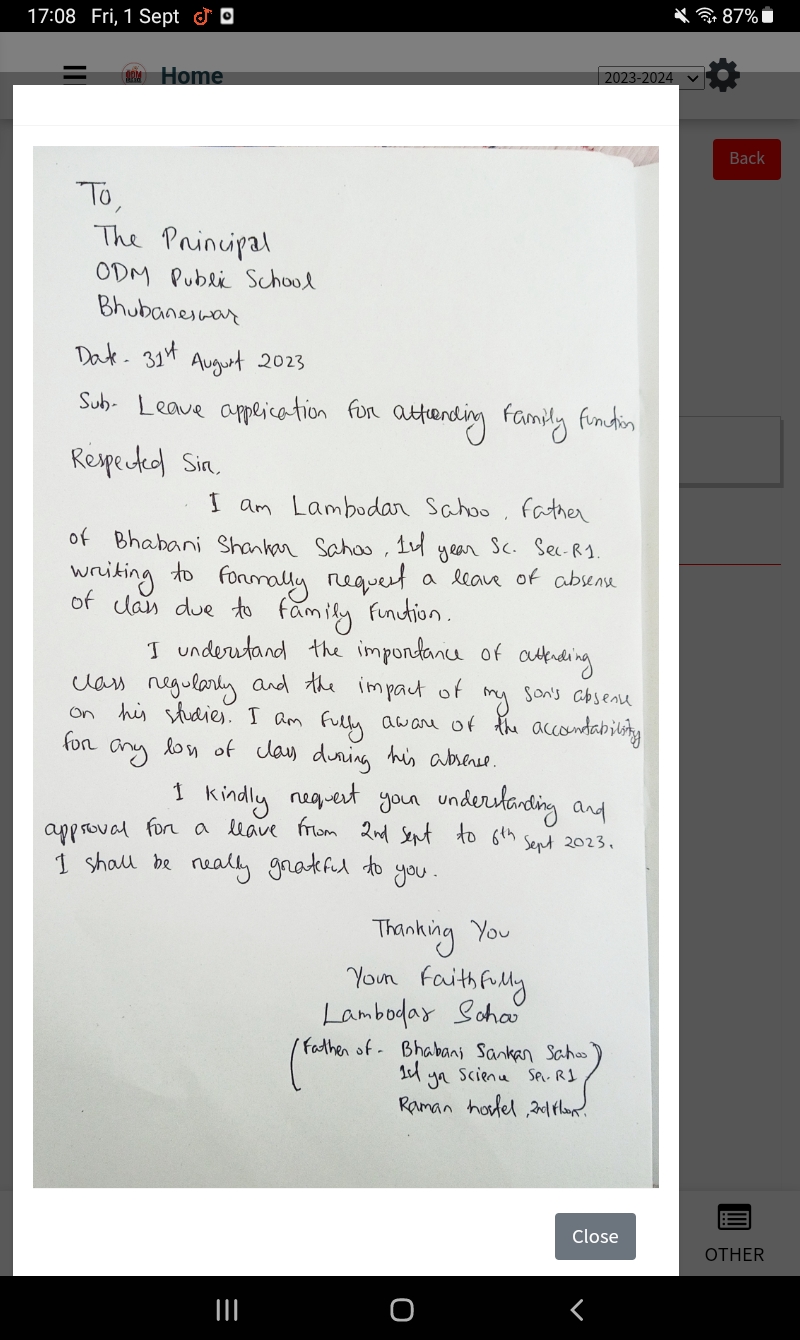 17:08 Fri, 1 Sept 87%
Home
2023-2024
Back
To,
The Principal
ODM Public School
Bhubaneswar
Date - 31st August 2023
Sub- Leave application for attending family function
Respected Sir,
I am Lambodar Sahoo, father
of Bhabani Shankar Sahoo, 1st year Sc. Sec-R1.
writing to formally request a leave of absense
of class due to family function.
I understand the importance of attending
class regularly and the impact of my son's absense
on his studies. I am fully aware of the accountability
for any loss of class during his absense.
I kindly request your understanding and
approval for a leave from 2nd Sept to 6th Sept 2023.
I shall be really grateful to you.
Thanking You
Your Faithfully
Lambodar Sahoo
(Father of - Bhabani Sankar Sahoo
1st yr Science Sec. R1
Raman hostel, 2nd floor.)
Close
OTHER